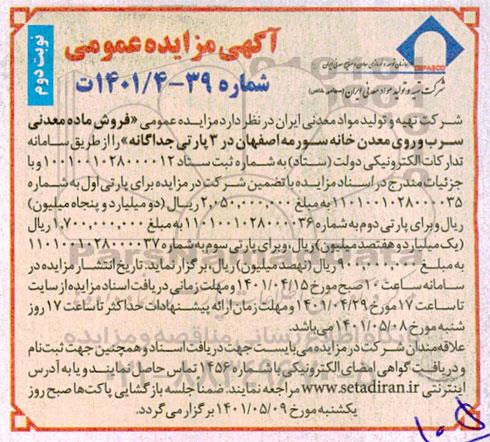 نوبت دوم
آگهی مزایده عمومی
شماره ۳۹-۱۴۰۱/۴ت
IMPASCO
شرکت تهیه و تولید مواد معدنی ایران (سهامی خاص)
شرکت تهیه و تولید مواد معدنی ایران در نظر دارد مزایده عمومی «فروش ماده معدنی
سرب و روی معدن خانه سورمه اصفهان در ۳ پارتی جداگانه» را از طریق سامانه
تدارکات الکترونیکی دولت (ستاد) به شماره ثبت ستاد ۱۰۰۱۰۰۱۰۲۸۰۰۰۰۱۲ و با
جزئیات مندرج در اسناد مزایده با تضمین شرکت در مزایده برای پارتی اول به شماره
۱۱۰۱۰۰۱۰۲۸۰۰۰۰۳۵ به مبلغ ۲,۰۵۰,۰۰۰,۰۰۰ ریال (دو میلیارد و پنجاه میلیون)
ریال و برای پارتی دوم به شماره ۱۱۰۱۰۰۱۰۲۸۰۰۰۰۳۶ به مبلغ ۱,۷۰۰,۰۰۰,۰۰۰
(یک میلیارد و هفتصد میلیون) ریال، و برای پارتی سوم به شماره ۱۱۰۱۰۰۱۰۲۸۰۰۰۰۳۷
به مبلغ ۹۰۰,۰۰۰,۰۰۰ ریال (نهصد میلیون) ریال، برگزار نماید. تاریخ انتشار مزایده در
سامانه ساعت ۱۰ صبح مورخ ۱۴۰۱/۰۴/۱۵ و مهلت زمانی دریافت اسناد مزایده از سایت
تا ساعت ۱۷ مورخ ۱۴۰۱/۰۴/۲۹ و مهلت زمان ارائه پیشنهادات حداکثر تا ساعت ۱۷ روز
شنبه مورخ ۱۴۰۱/۰۵/۰۸ می‌باشد.
علاقه‌مندان شرکت در مزایده می‌بایست جهت دریافت اسناد و همچنین جهت ثبت‌نام
و دریافت گواهی امضای الکترونیکی با شماره ۱۴۵۶ تماس حاصل نمایند و یا به آدرس
اینترنتی www.setadiran.ir مراجعه نمایند. ضمناً جلسه بازگشایی پاکت‌ها صبح روز
یکشنبه مورخ ۱۴۰۱/۰۵/۰۹ برگزار می‌گردد.